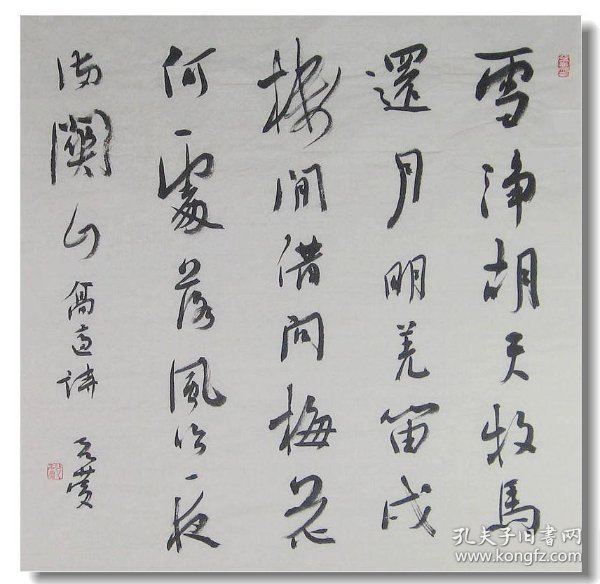 雪淨胡天牧馬
還月明羌笛戍
樓間借問梅花
何處落風吹一夜
滿關山 高適詩
孔夫子旧书网
www.kongfz.com